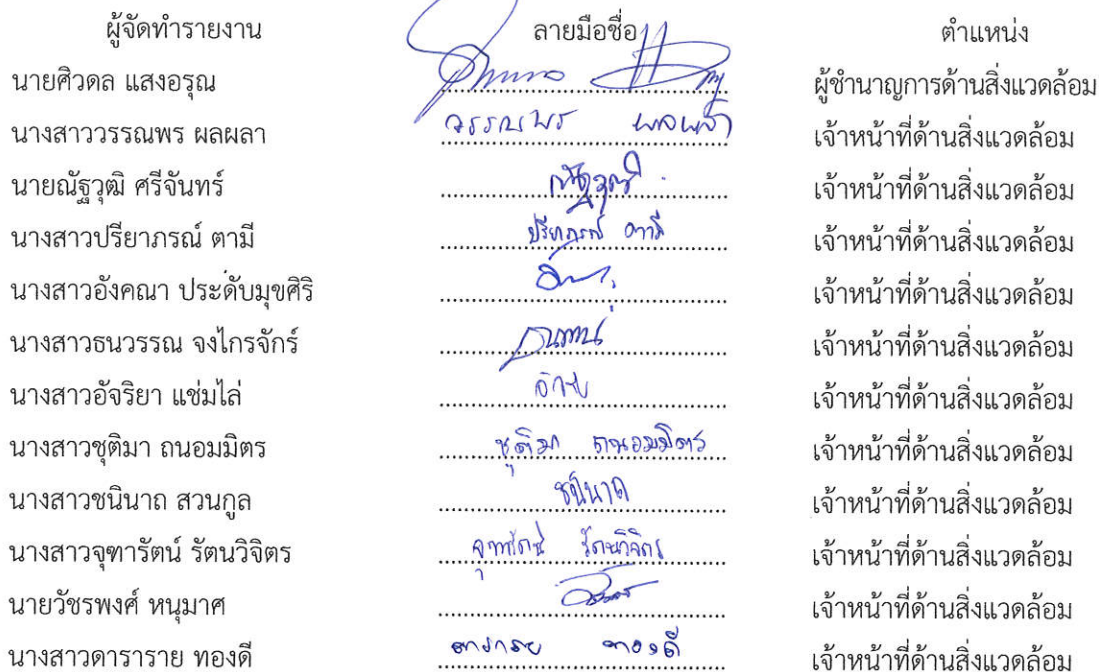 ผู้จัดทำรายงาน ลายมือชื่อ ตำแหน่ง
นายศิวดล แสงอรุณ ผู้ชำนาญการด้านสิ่งแวดล้อม
นางสาววรรณพร ผลผลา วรรณพร ผลผลา เจ้าหน้าที่ด้านสิ่งแวดล้อม
นายณัฐวุฒิ ศรีจันทร์ ณัฐวุฒิ เจ้าหน้าที่ด้านสิ่งแวดล้อม
นางสาวปรียาภรณ์ ตามี ปรียาภรณ์ ตามี เจ้าหน้าที่ด้านสิ่งแวดล้อม
นางสาวอังคณา ประดับมุขศิริ เจ้าหน้าที่ด้านสิ่งแวดล้อม
นางสาวธนวรรณ จงไกรจักร์ เจ้าหน้าที่ด้านสิ่งแวดล้อม
นางสาวอัจริยา แช่มไล่ เจ้าหน้าที่ด้านสิ่งแวดล้อม
นางสาวชุติมา ถนอมมิตร ชุติมา ถนอมมิตร เจ้าหน้าที่ด้านสิ่งแวดล้อม
นางสาวชนินาถ สวนกูล ชนินาถ เจ้าหน้าที่ด้านสิ่งแวดล้อม
นางสาวจุฑารัตน์ รัตนวิจิตร จุฑารัตน์ รัตนวิจิตร เจ้าหน้าที่ด้านสิ่งแวดล้อม
นายวัชรพงศ์ หนุมาศ เจ้าหน้าที่ด้านสิ่งแวดล้อม
นางสาวดาราราย ทองดี ดาราราย ทองดี เจ้าหน้าที่ด้านสิ่งแวดล้อม